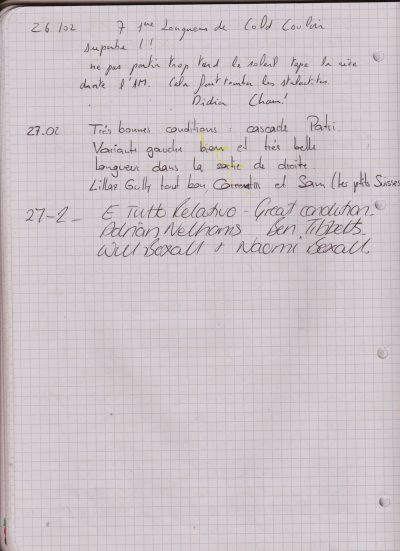 26/02 7 1ères Longueurs de Cold Couloir
superbe !!
ne pas partir trop tard le soleil tape la rive
droite l'AM. Cela fait tomber les stalactites.
Didier Cham!
27.02 Très bonnes conditions : cascade Patri.
Variante gauche bien et très belle
longueur dans la sortie de droite.
Lillaz Gully tout bon, Corentin et Sam (les ptits Suisses
27-2- E Tutto Relativo - Great condition.
Adrian Nelhams Ben Tibbetts.
Will Boxall + Naomi Boxall.